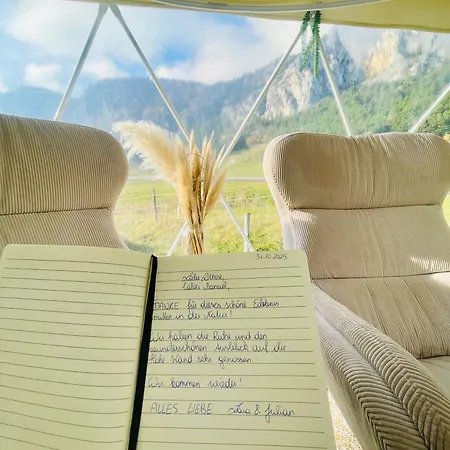 31.10.2025
Liebe Denise,
lieber Manuel,
DANKE für dieses schöne Erlebnis
mitten in der Natur!
Wir haben die Ruhe und den
wunderschönen Ausblick auf die
Hohe Wand sehr genossen.
Wir kommen wieder!
ALLES LIEBE & Julian